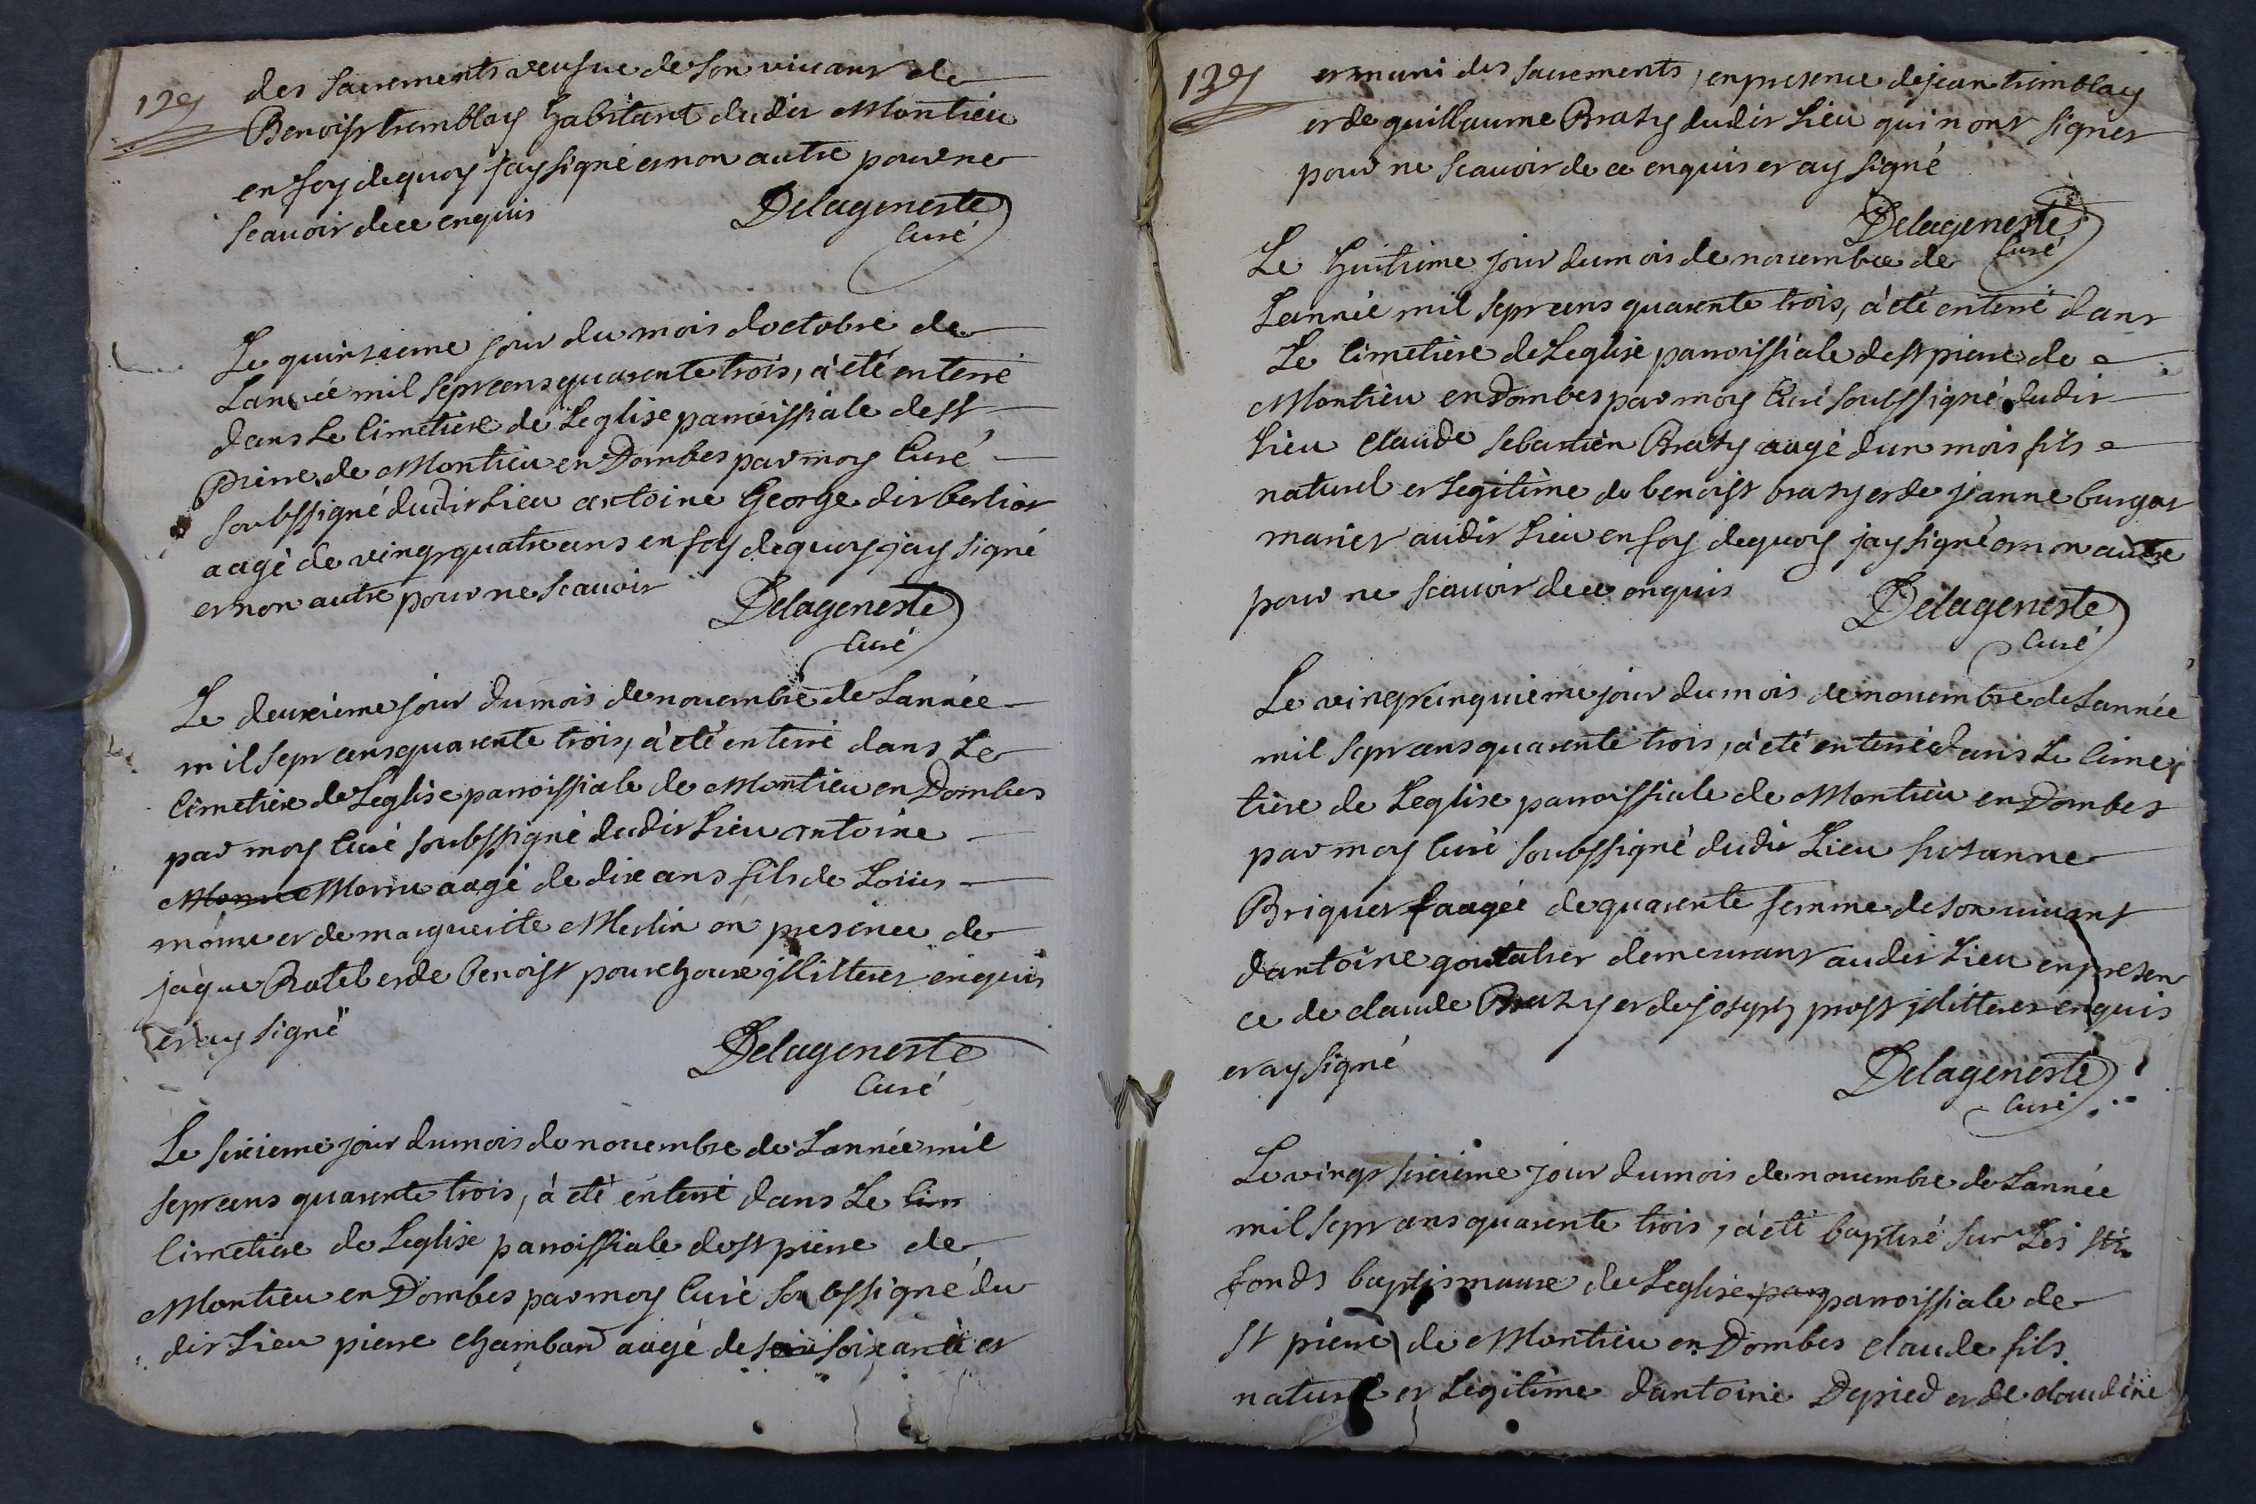 12e
des sacrements veufue de son viuant de
Benoist tremblay habitant dudit Montieu
en foy dequoy jay signé et non autre pour ne
scauoir de ce enquis
Delageneste
Curé
Le quinzieme jour du mois doctobre de
Lannée mil sept cens quarente trois, à été enterré
dans Le Cimetiere de Leglise parroissiale de st
Pierre de Montieu en Dombes par moy Curé
soubssigné dudit Lieu antoine George dit berliot
aagé de vingt quatre ans en foy dequoy jay signé
et non autre pour ne scauoir
Delageneste
Curé
Le deuxiéme jour du mois de nouembre de Lannée
mil sept cens quarente trois, à été enterré dans Le
Cimetiere de Leglise parroissiale de Montieu en Dombes
par moy Curé soubssigné dudit Lieu antoine
Morru aagé de dix ans fils de Loüis
morru et de marguerite Merlin en presence de
jaque Ratel et de benoist pourchoux jllitteres enquis
et ay signé
Delageneste
Curé
Le sixieme jour du mois de nouembre de Lannée mil
sept cens quarente trois, à été enterré dans Le Cim
Cimetiere de Leglise parroissiale de st pierre de
Montieu en Dombes par moy Curé soubssigné du
dit Lieu pierre chamban aagé de soix soixante et
13e
et muni des sacrements, en presence de jean tremblay
et de guillaume Brazy dudit Lieu qui n ont signer
pour ne scauoir de ce enquis et ay signé
Delageneste
Curé
Le huitieme jour du mois de nouembre de
Lannée mil sept cens quarente trois, à été enterré dans
Le Cimetiere de Leglise parroissiale de st pierre de
Montieu en Dombes par moy Curé soubssigné dudit
Lieu claude sebastien Brazy aagé dun mois fils
naturel et Legitime de benoist brazy et de jeanne burgat
mariet audit Lieu en foy dequoy jay signé et non autre
pour ne scauoir de ce enquis
Delageneste
Curé
Le vingt cinquieme jour du mois de nouembre de Lannée
mil sept cens quarente trois, à été enterrée dans Le Cime
tiere de Leglise parroissiale de Montieu en Dombes
par moy Curé soubssigné dudit Lieu suzanne
Briquet aagée de quarente femme de son viuant
dantoine goutalier demeurant audit Lieu en presen
ce de claude Brazy et de joseph prost jlitteret enquis
et ay signé
Delageneste
Curé
Le vingt sixieme jour du mois de nouembre de Lannée
mil sept cens quarente trois, à été baptisé sur Les sts
fonds baptismaux de Leglise par parroissiale de
st pierre de Montieu en Dombes claude fils
naturel et Légitime dantoine Depried et de claudine